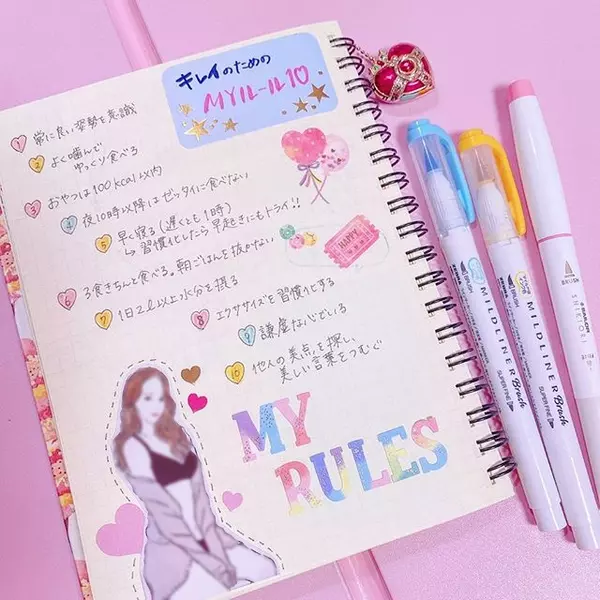 キレイのための
MYルール10
1 常に良い姿勢を意識
2 よく噛んで
ゆっくり食べる
3 おやつは100kcal以内
4 夜10時以降はゼッタイに食べない
5 早く寝る(遅くとも1時)
→習慣化したら早起きにもトライ!!
6 3食きちんと食べる。朝ごはんを抜かない
7 1日2L以上水分を摂る
8 エクササイズを習慣化する
9 謙虚な心でいる
10 他人の美点を探し、
美しい言葉をつむぐ
HAPPY
MY
RULES
MILDLINER Brush
SUPER FINE
BRUSH
MILDLINER Brush
SUPER FINE
BRUSH
SAILOR
SHIKIORI